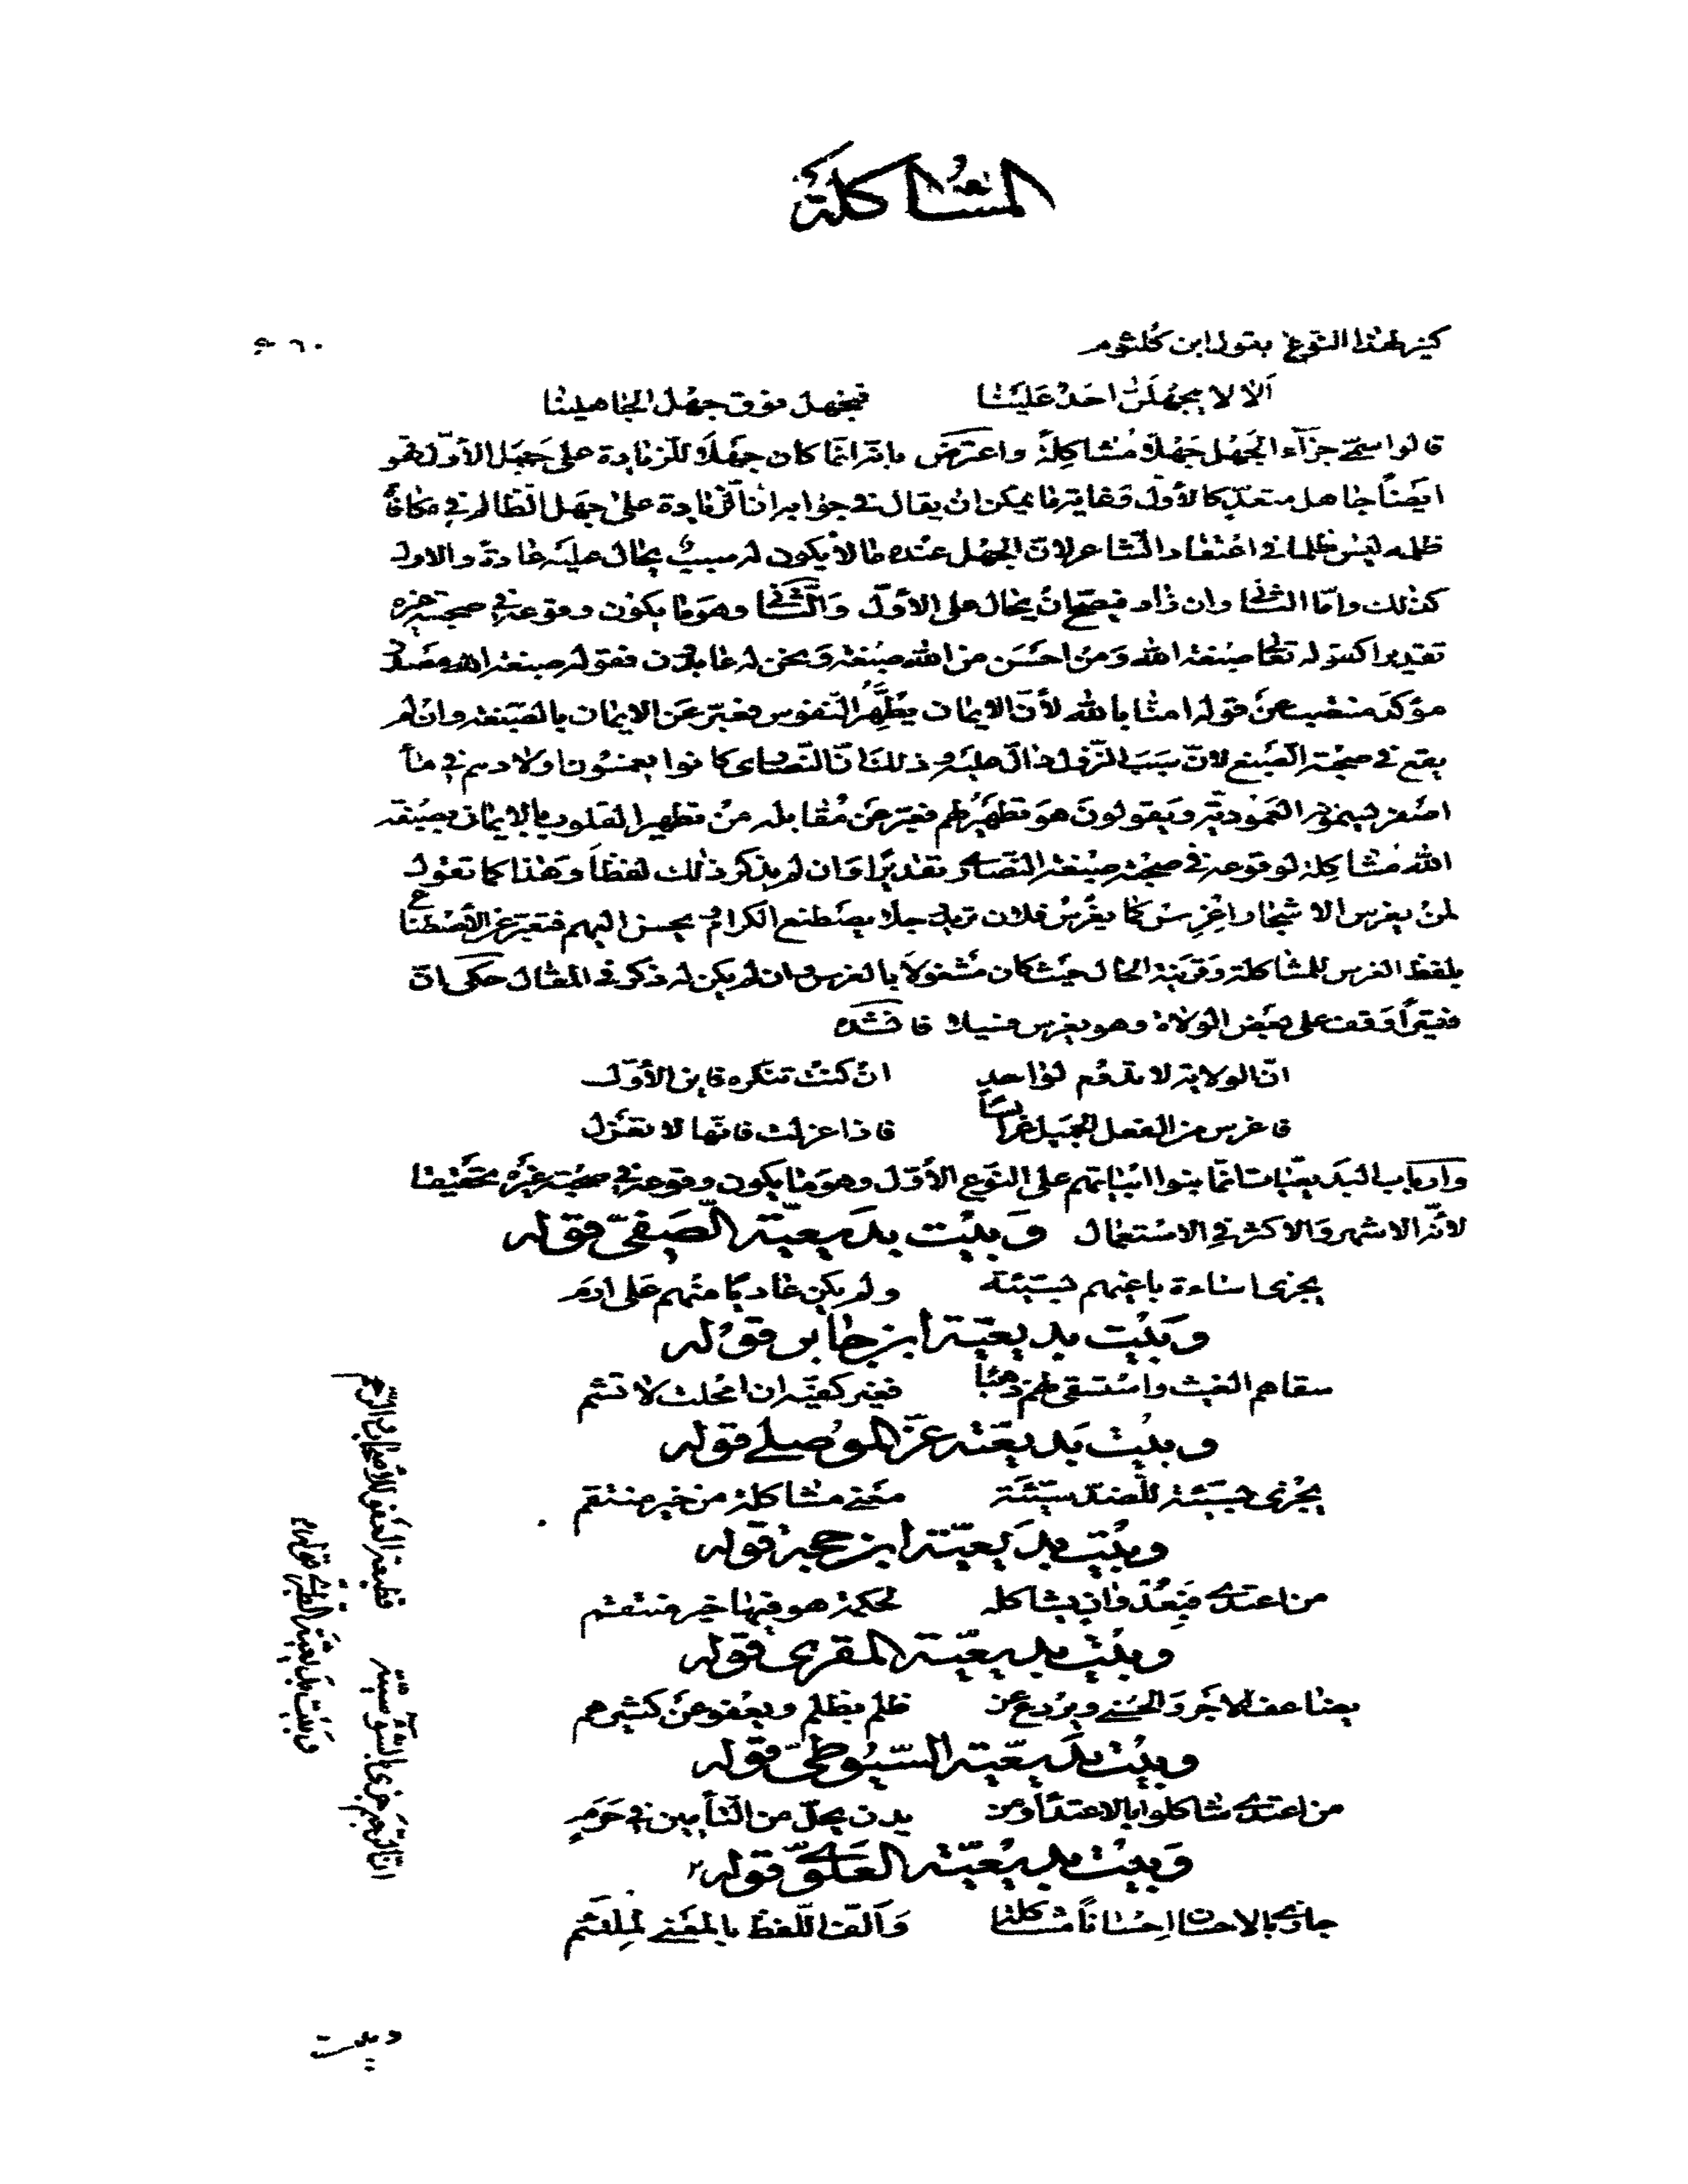 المشاكلة
كثير لهذا النوع بقول ابن كلثوم
ألا لا يجهلن احد علينا فنجهل فوق جهل الجاهلينا
قالوا سمى جزآء الجهل جهلاً مشاكلة واعترض بانه انما كان جهلاً للزيادة على جهل الأول فهو
ايضاً جاهل متعدّ كالأول وغاية ما يمكن ان يقال في جوابه ان الزيادة على جهل الظالم في مكافاة
ظلمه ليس ظلما في اعتقاد الشاعر لان الجهل عنده ما لا يكون له سبب يحال عليه عادة والاول
كذلك واما الثاني وان زاد فيصح ان يحال على الأول والثاني وهو ما يكون وقوعه في صحبة غيره
تقديرا كقوله تعالى صبغة الله ومن احسن من الله صبغة ونحن له عابدون فقوله صبغة الله مصدر
مؤكد منتصب عن قوله امنا بالله لأن الايمان يطهر النفوس فعبر عن الايمان بالصبغة وان لم
يقع في صحبة الصبغ لان سبب النزول دال عليه وذلك ان النصارى كانوا يغمسون اولادهم في مآء
اصفر يسمونه المعمودية ويقولون هو تطهير لهم فعبر عن مقابله من تطهير القلوب بالايمان بصبغة
الله مشاكلة لوقوعه في صحبة صبغة النصارى تقديرا وان لم يذكر ذلك لفظاً وهذا كما تقول
لمن يغرس الاشجار اغرس كما يغرس فلان تريد رجلا يصطنع الكرام ويحسن اليهم فتعبر عن الاصطناع
بلفظ الغرس للمشاكلة وقرينة الحال حيث كان مشغولا بالغرس وان لم يكن له ذكر في المقال حكى ان
فقيراً وقف على بعض الولاة وهو يغرس فسيلا فانشده
ان الولاية لا تدوم لواحد ان كنت تنكره فاين الأول
فاغرس من الفعل الجميل غرائسا فاذا عزلت فانها لا تعزل
وارباب البديعيات انما بنوا ابياتهم على النوع الأول وهو ما يكون وقوعه في صحبة غيره تحقيقا
لأنه الاشهر والاكثر في الاستعمال وبيت بديعية الصفيّ قوله
يجزى اساءة باغيهم بسيئة ولم يكن عاديا منهم على ارم
وبيت بديعية ابن جابر قوله
سقاهم الغيث واستسقى لهم ذهبا فغير كفيه ان امحلت لا تشم
وبيت بديعية عز الموصلي قوله
يجزى بسيئة للضد سيئة معنى مشاكلة من خير منتقم
وبيت بديعية ابن حجة قوله
من اعتدى فبعدوان يشاكله لحكمة هو فيها خير منتقم
وبيت بديعية المقري قوله
يضاعف الاجر والحسنى ويردع عن ظلم بظلم ويعفو عن كثيرهم
وبيت بديعية السيوطي قوله
من اعتدى شاكلوا بالاعتداء ومن يدن يحل من النائين في حرم
وبيت بديعية العلوي قوله
جازى بالاحسان احساناً مشاكلنا وألف اللفظ بالمعنى لملتئم
وبيت بديعية الطبري قوله
وبيت